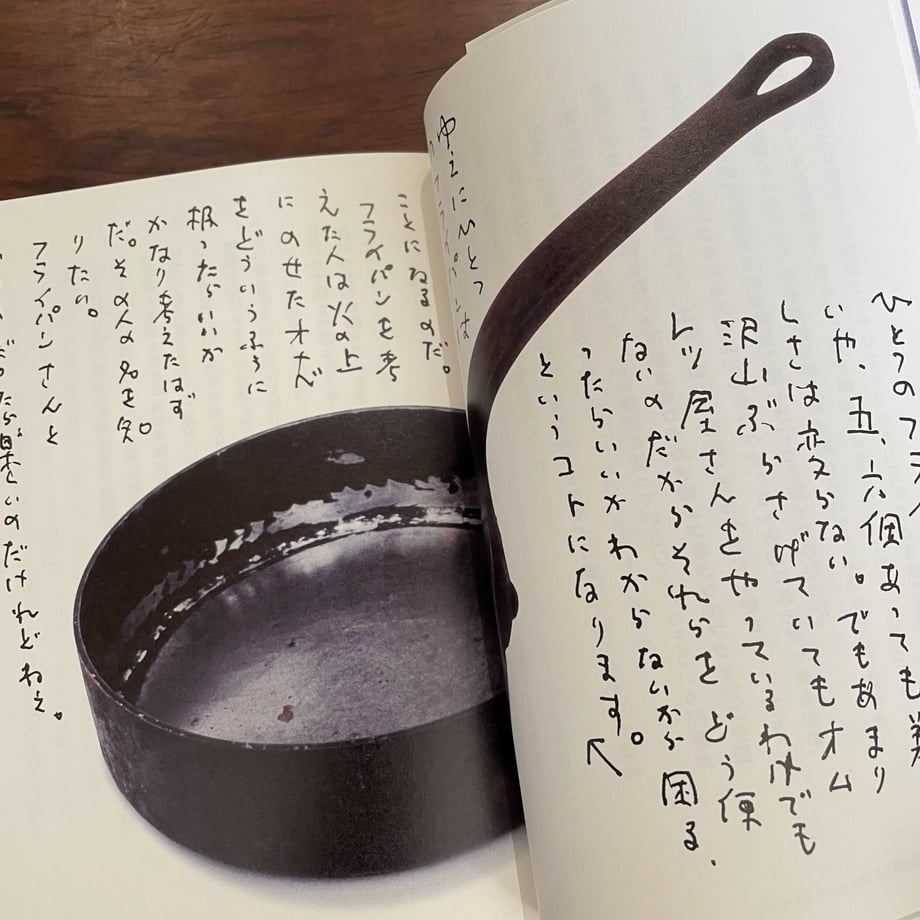 ひとつのフライ
いや、五、六個あっても美
しさは変らない。でもあまり
沢山ぶらさげていてもオム
レツ屋さんをやっているわけでも
ないのだからそれらをどう便
ったらいいかわからないから困る、
というコトになります。↖
ゆえにひとつ
のフライパンは
ことになるのだ。
フライパンを考
えた人は火の上
にのせたオナベ
をどういうふうに
扱ったらいいか
かなり考えたはず
だ。その人の名を知
りたい。
フライパンさんと
だったら いいのだけれどねぇ。